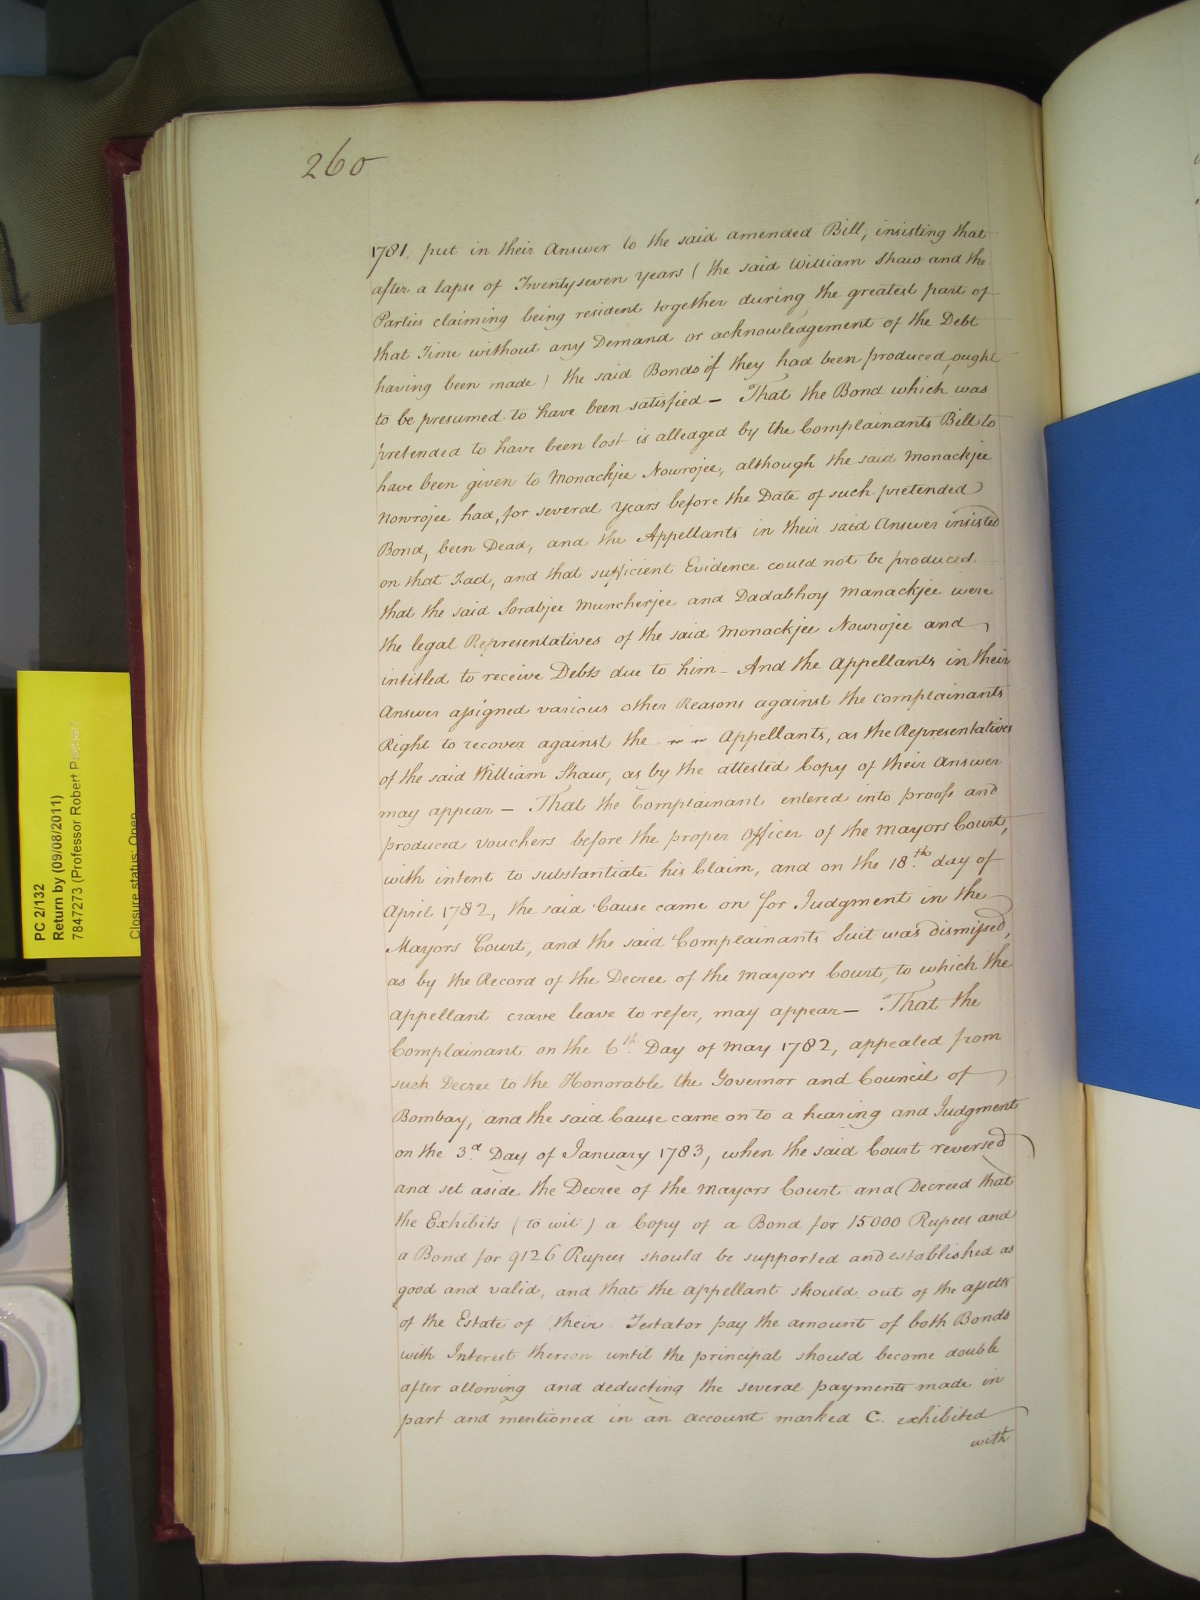 260
1781. put in their Answer to the said amended Bill, insisting that
after a lapse of Twentyseven years ( the said William Shaw and the
Parties claiming being resident together during the greatest part of
that Time without any Demand or acknowledgement of the Debt
having been made ) the said Bonds if they had been produced, ought
to be presumed to have been satisfied — That the Bond which was
pretended to have been lost is alledged by the Complainants Bill to
have been given to Monackjee Nowrojee, although the said Monackjee
Nowrojee had, for several years before the Date of such pretended
Bond, been Dead, and the Appellants in their said Answer insisted
on that Fact, and that sufficient Evidence could not be produced
that the said Sorabjee Muncherjee and Dadabhoy Manackjee were
the legal Representatives of the said Monackjee Nowrojee and
intitled to receive Debts due to him — And the Appellants in their
Answer assigned various other Reasons against the Complainants
Right to recover against the Appellants, as the Representatives
of the said William Shaw, as by the attested Copy of their Answer
may appear — That the Complainant entered into proofs and
produced vouchers before the proper Officer of the Mayors Court,
with intent to substantiate his Claim, and on the 18th day of
April 1782, the said Cause came on for Judgment in the
Mayors Court, and the said Complainants Suit was dismissed,
as by the Record of the Decree of the Mayors Court, to which the
appellant crave leave to refer, may appear — That the
Complainant on the 6th Day of May 1782, appealed from
such Decree to the Honorable the Governor and Council of
Bombay, and the said Cause came on to a hearing and Judgment
on the 3d Day of January 1783, when the said Court reversed
and set aside the Decree of the Mayors Court and Decreed that
the Exhibits ( to wit ) a Copy of a Bond for 15000 Rupees and
a Bond for 9126 Rupees should be supported and established as
good and valid, and that the appellant should out of the assets
of the Estate of their Testator pay the amount of both Bonds
with Interest thereon until the principal should become double
after allowing and deducting the several payments made in
part and mentioned in an account marked C. exhibited
with
PC 2/132
Return by (09/08/2011)
7847273 (Professor Robert
Closure status: Open